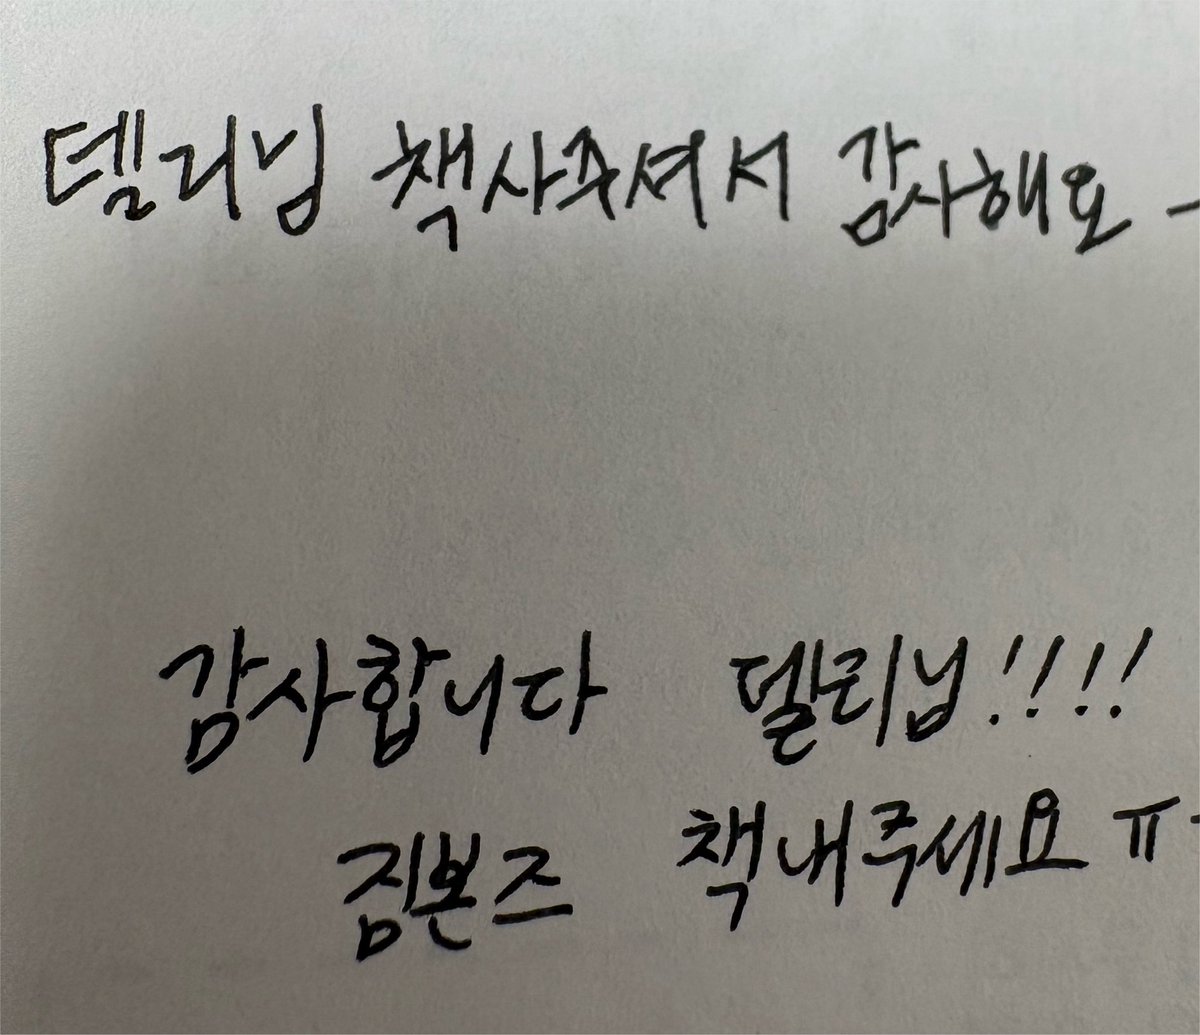 델리님 책사주셔서 감사해요
감사합니다 델리님!!!!
짐본즈 책내주세요 ㅠ